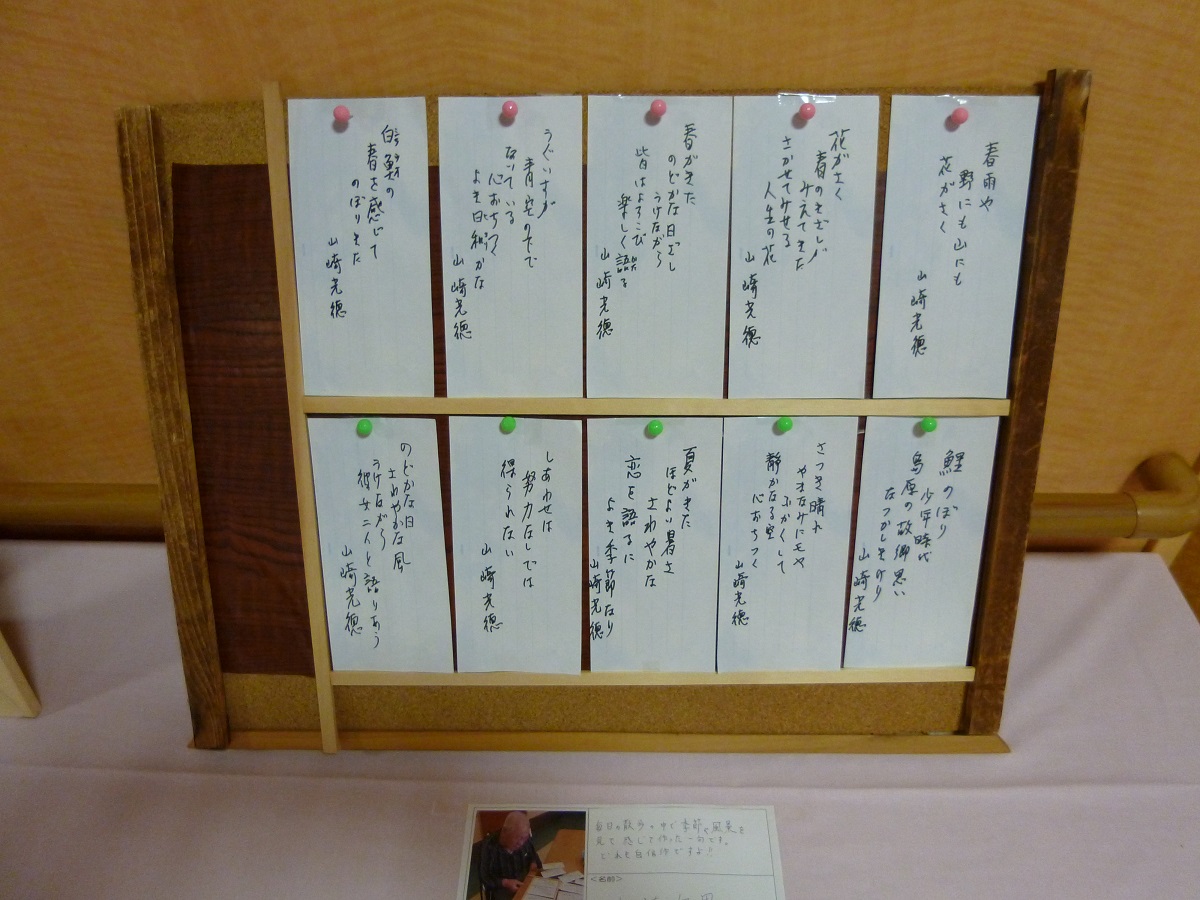 春雨や
野にも山にも
花がさく
山崎光徳
花がさく
春のきざしが
みえてきた
さかせてみせる
人生の花
山崎光徳
春がきた
のどかな日ざし
うけながら
皆はよろこび
楽しく語る
山崎光徳
うぐいすが
青空の下で
ないている
心おちつく
よき日和かな
山崎光徳
白魚の
春を感じて
のぼりきた
山崎光徳
鯉のぼり
少年時代
島原の故郷思い
なつかしきけり
山崎光徳
さつき晴れ
やまなみにモヤ
ふかくして
静かなる空
心おちつく
山崎光徳
夏がきた
ほどよい暑さ
さわやかな
恋を語るに
よき季節なり
山崎光徳
しあわせは
努力なしでは
得られない
山崎光徳
のどかな日
さわやかな風
うけながら
彼女二人と語りあう
山崎光徳
毎日の散歩の中で季節や風景を
見て感じて作った一句です。
どれも自信作ですよ!!
<名前>